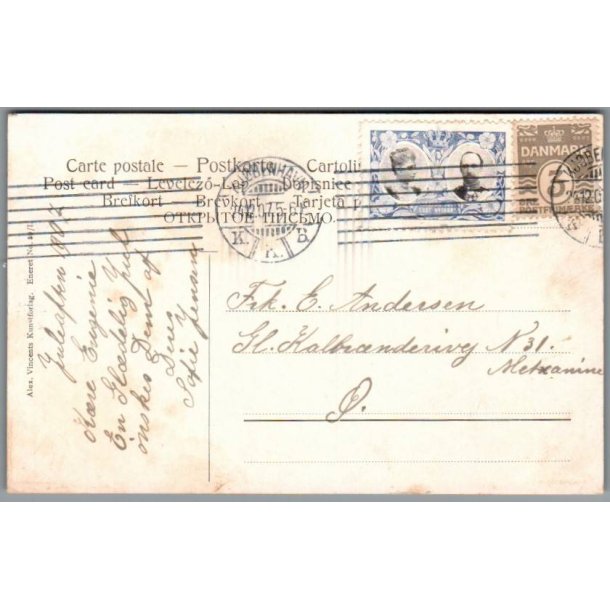 Carte postale — Postkarte — Cartolina
Post card — Levelező-Lap — Dopisnice
Brevkort — Brevkort — Tarjeta
ОТКРЫТОЕ ПИСЬМО.
DANMARK
3
K. B
Alex. Vincents Kunstforlag. Eneret No.
Juleaften 1907
Kære Eugenie
En Glædelig Jul
ønskes Dem af
Deres
Sofie Jensen
Frk. E. Andersen
Gl. Kalkbrænderivej N 31.
Metxanine
Ø.